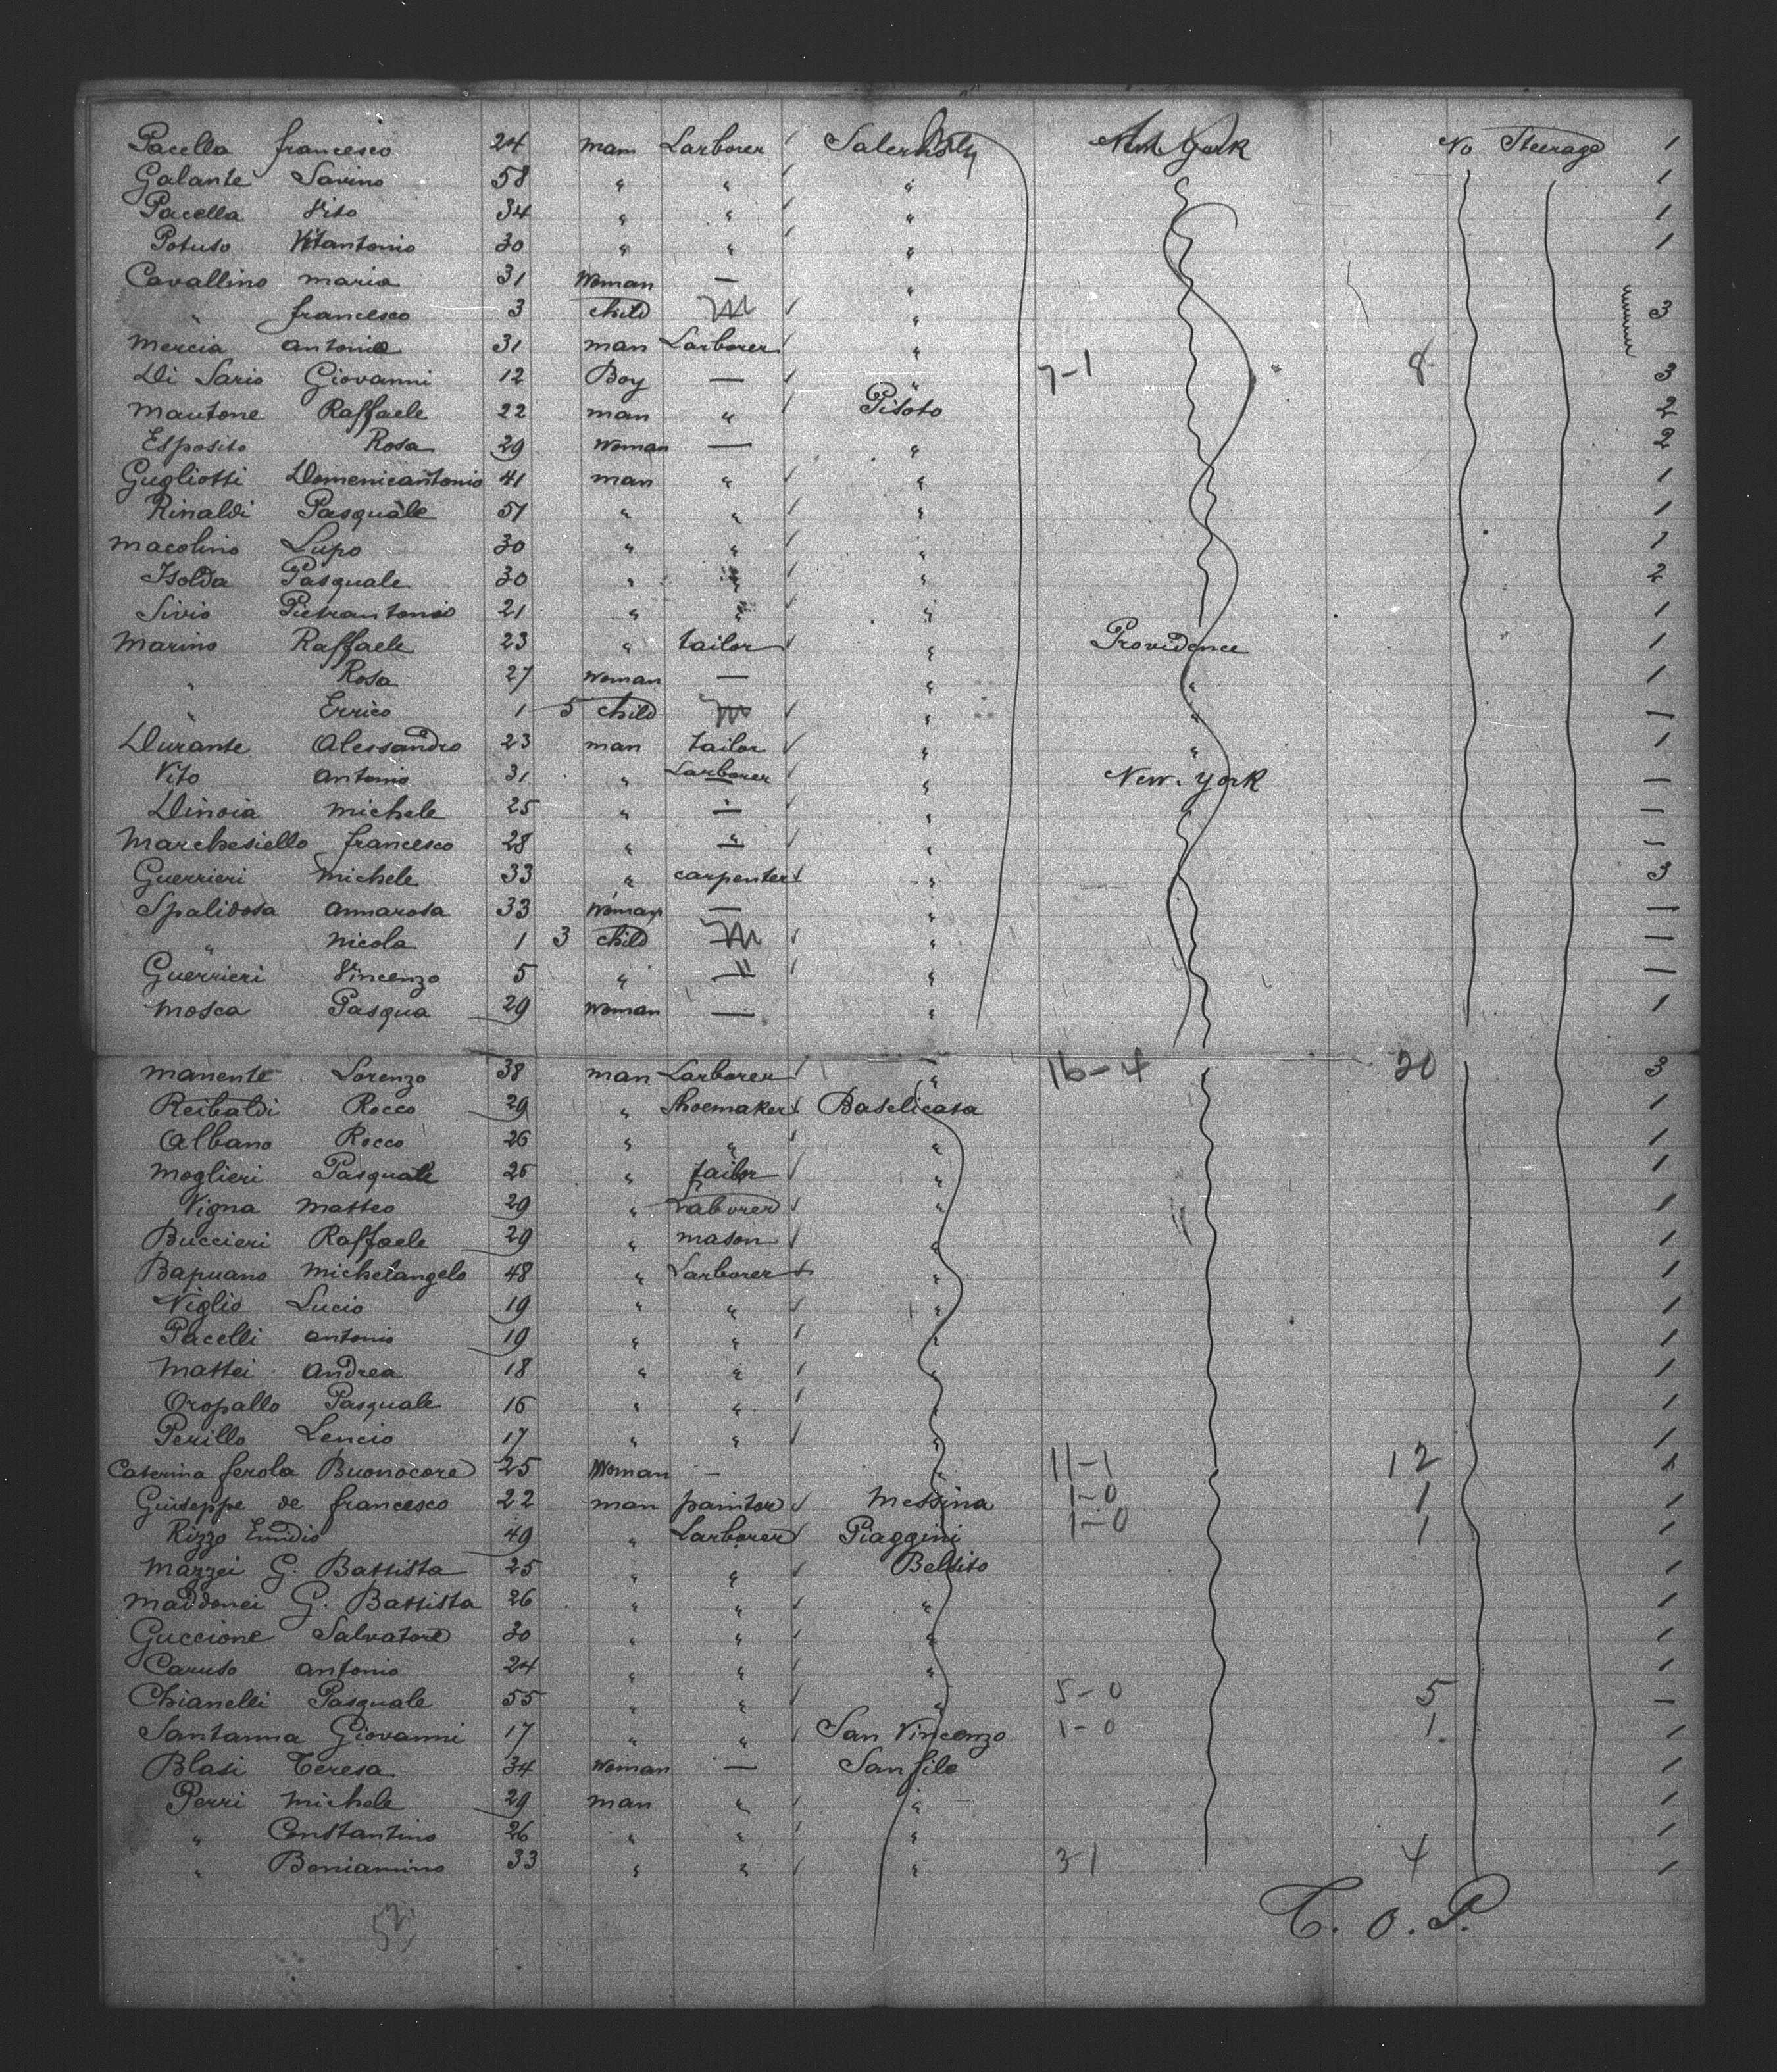 Pacella francesco 24 man Larborer Salerno Italy New York No Steerage 1
Galante Savino 58 " " " 1
Pacella Vito 34 " " " 1
Potuto Vitantonio 30 " " " 1
Cavallino maria 31 Woman — "
" francesco 3 child " 3
Mercia antonio 31 man Larborer "
Di Sario Giovanni 12 Boy — " 7-1 8 3
Mautone Raffaele 22 man " Pisoto 2
Esposito Rosa 29 Woman — " 2
Gugliotti Domenicantonio 41 man " " 1
Rinaldi Pasquale 51 " " " 1
Macolino Lupo 30 " " " 1
Isolda Pasquale 30 " " " 2
Sivio Pietrantonio 21 " " " 1
Marino Raffaele 23 " tailor " Providence 1
" Rosa 27 Woman — " " 1
" Errico 1 5 child " " 1
Durante Alessandro 23 man tailor " " 1
Vito Antonio 31 " Larborer " New-York 1
Dinoia Michele 25 " — " 1
Marchesiello francesco 28 " " " 1
Guerrieri Michele 33 " carpenter " 3
Spalidosa Annarosa 33 Woman — " 1
" Nicola 1 3 child " 1
Guerrieri Vincenzo 5 " " " 1
Mosca Pasqua 29 Woman — " 1
Manente Lorenzo 38 man Larborer " 16-4 20 3
Reibaldi Rocco 29 " Shoemaker Baselicata 1
Albano Rocco 26 " " " 1
Moglieri Pasquale 25 " tailor " 1
Vigna Matteo 29 " Laborer " 1
Buccieri Raffaele 29 " mason " 1
Bapuano Michelangelo 48 " Larborer " 1
Viglio Lucio 19 " " " 1
Pacelli Antonio 19 " " " 1
Mattei Andrea 18 " " " 1
Oropallo Pasquale 16 " " " 1
Perillo Lencio 17 " " " 1
Caterina ferola Buonocore 25 Woman — " 11-1 12 1
Giuseppe de francesco 22 man paintor Messina 1-0 1 1
Rizzo Emidio 49 " Larborer Piaggini 1-0 1 1
Mazzei G. Battista 25 " " Belsito 1
Maddonei G. Battista 26 " " " 1
Guccione Salvatore 30 " " " 1
Caruso Antonio 24 " " " 1
Chianelli Pasquale 55 " " " 5-0 5 —
Santanna Giovanni 17 " " San Vincenzo 1-0 1 1
Blasi Teresa 34 Woman — San file 1
Perri Michele 29 man " " 1
" Constantino 26 " " " 1
" Beniamino 33 " " " 3-1 4 1
T. O. P.
52